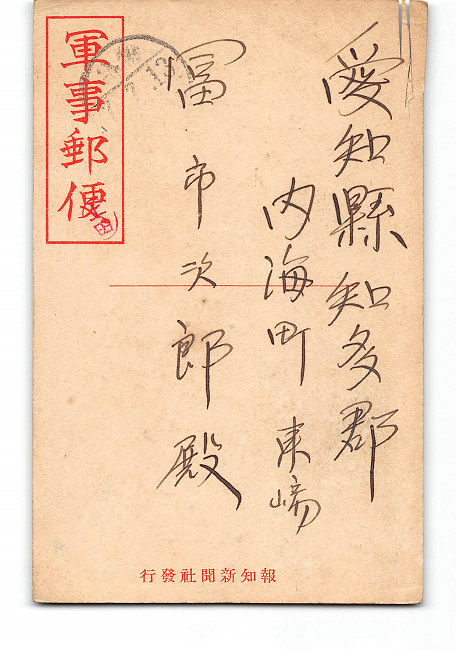 愛知縣知多郡
内海町 東端
冨市次郎殿
軍事郵便
行發社聞新知報